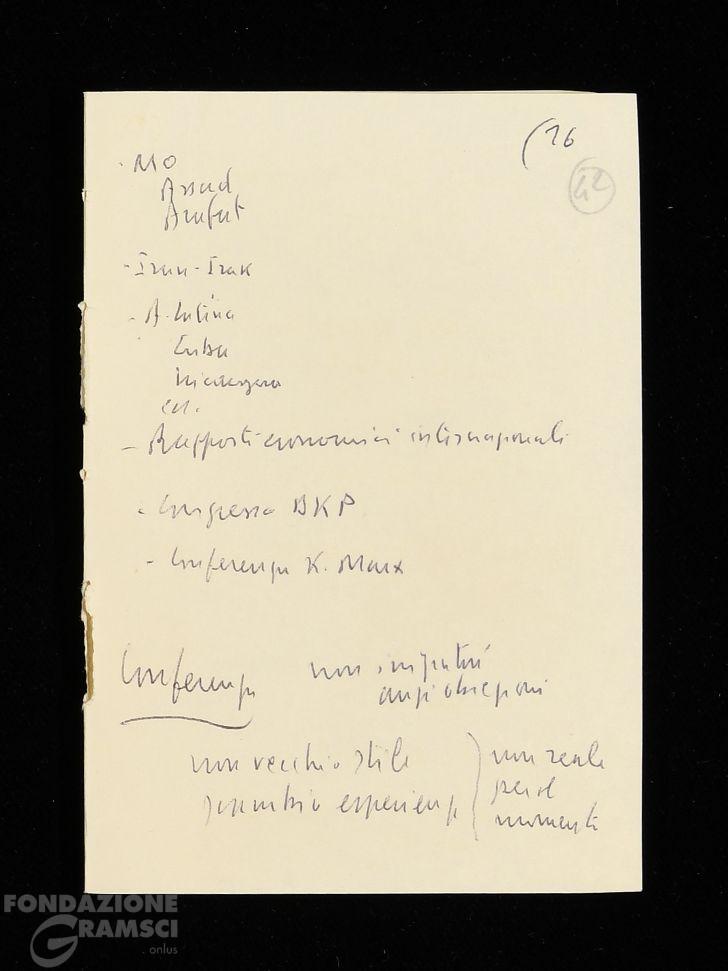 (16
42
- MO
Assad
Arafat
- Iran - Irak
- A. Latina
Cuba
Nicaragua
ecc.
- Rapporti economici internazionali
- Congresso BKP
- Conferenza K. Marx
Conferenza non
anzi obiezioni
non vecchio stile
scambio esperienze
non reale
per il
momento
FONDAZIONE
GRAMSCI
.onlus